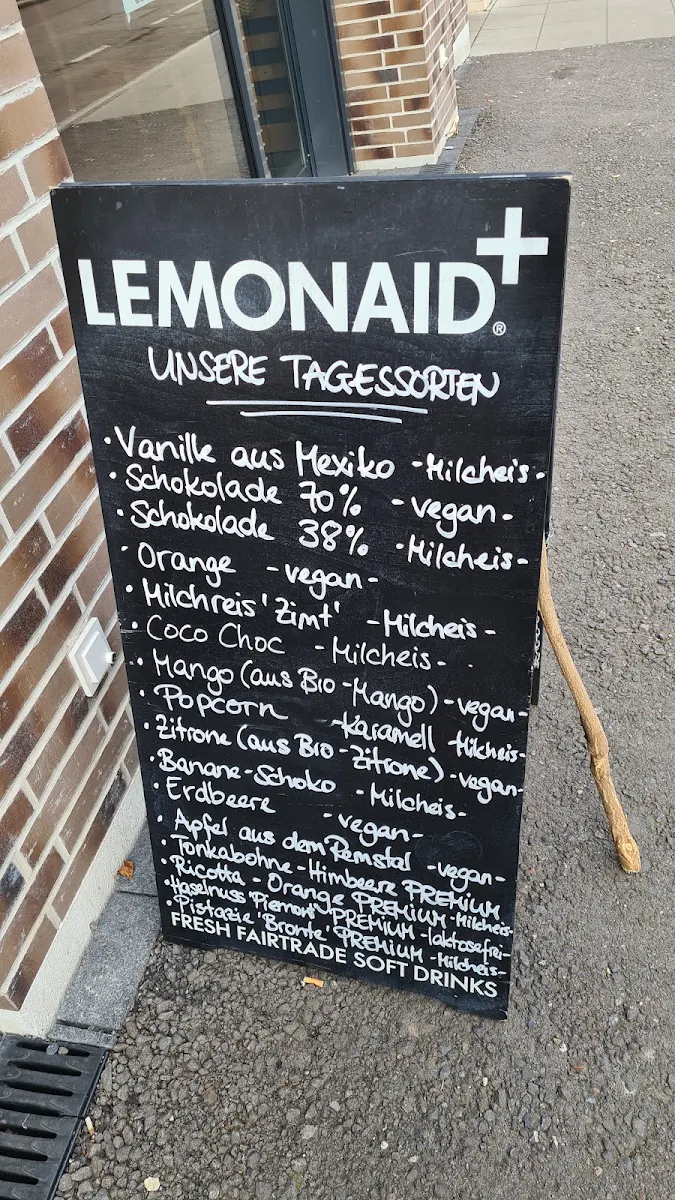 LEMONAID+®
UNSERE TAGESSORTEN
• Vanille aus Mexiko -Milcheis-
• Schokolade 70% -vegan-
• Schokolade 38% -Milcheis-
• Orange -vegan-
• Milchreis 'Zimt' -Milcheis-
• Coco Choc -Milcheis-
• Mango (aus Bio-Mango) -vegan-
• Popcorn -Karamell -Milcheis-
• Zitrone (aus Bio-Zitrone) -vegan-
• Banane-Schoko -Milcheis-
• Erdbeere -vegan-
• Apfel aus dem Remstal -vegan-
• Tonkabohne-Himbeere PREMIUM
• Ricotta-Orange PREMIUM -Milcheis-
• Haselnuss 'Piemont' PREMIUM -laktosefrei-
• Pistazie 'Bronte' PREMIUM -Milcheis-
FRESH FAIRTRADE SOFT DRINKS